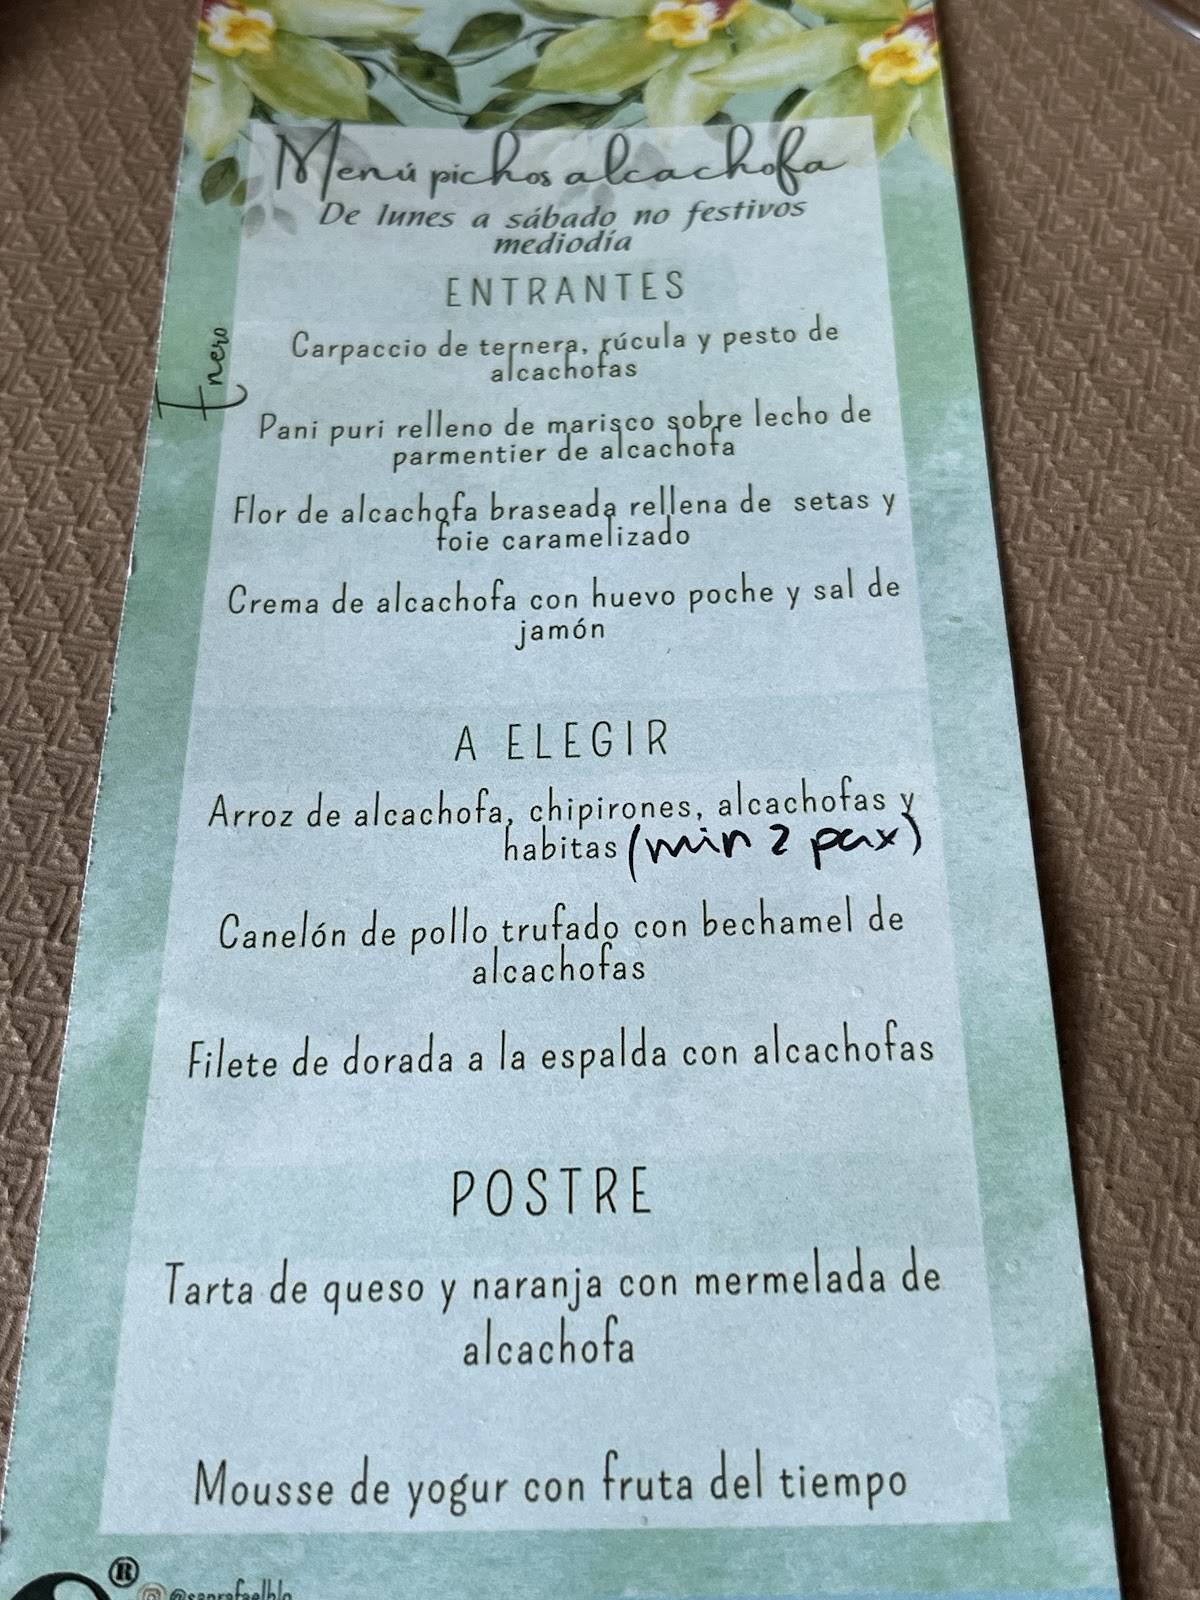 Menú pichos alcachofa
De lunes a sábado no festivos
mediodía
Enero
ENTRANTES
Carpaccio de ternera, rúcula y pesto de
alcachofas
Pani puri relleno de marisco sobre lecho de
parmentier de alcachofa
Flor de alcachofa braseada rellena de setas y
foie caramelizado
Crema de alcachofa con huevo poche y sal de
jamón
A ELEGIR
Arroz de alcachofa, chipirones, alcachofas y
habitas (min 2 pax)
Canelón de pollo trufado con bechamel de
alcachofas
Filete de dorada a la espalda con alcachofas
POSTRE
Tarta de queso y naranja con mermelada de
alcachofa
Mousse de yogur con fruta del tiempo
®